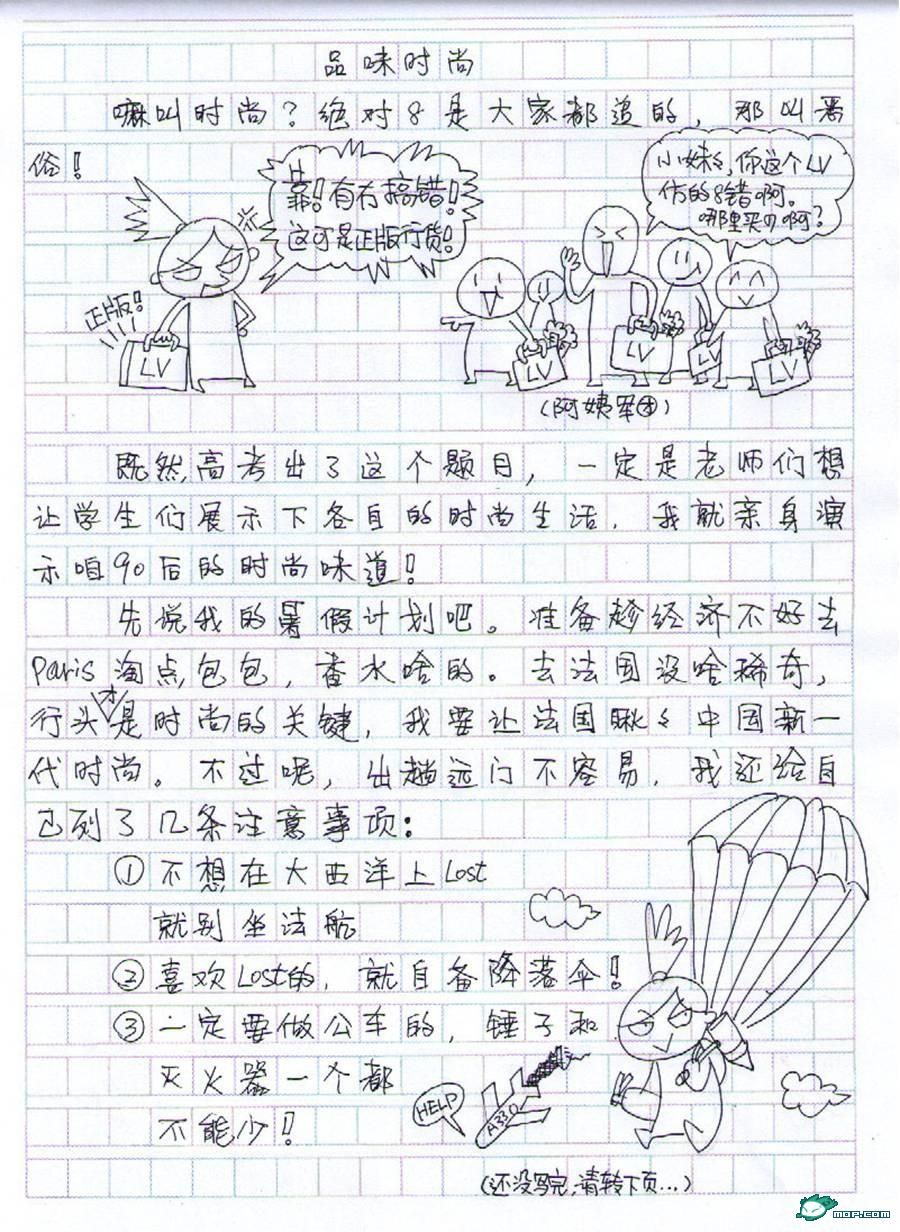 品味时尚
嘛叫时尚？绝对8是大家都追的，那叫恶
俗！
靠！有冇搞错！
这可是正版行货！
小妹々，你这个LV
仿的8错啊。
哪里买的啊？
正版！
LV
LV
LV
LV
LV
（阿姨军团）
既然高考出了这个题目，一定是老师们想
让学生们展示下各自的时尚生活，我就亲身演
示咱90后的时尚味道！
先说我的暑假计划吧。准备趁经济不好去
Paris淘点包包，香水啥的。去法国没啥稀奇，
行头才是时尚的关键，我要让法国瞅々中国新一
代时尚。不过呢，出趟远门不容易，我还给自
己列了几条注意事项：
①不想在大西洋上Lost
就别坐法航
②喜欢Lost的，就自备降落伞！
③一定要做公车的，锤子和
灭火器一个都
不能少！
HELP
A330
（还没写完，请转下页...）
MOP.COM